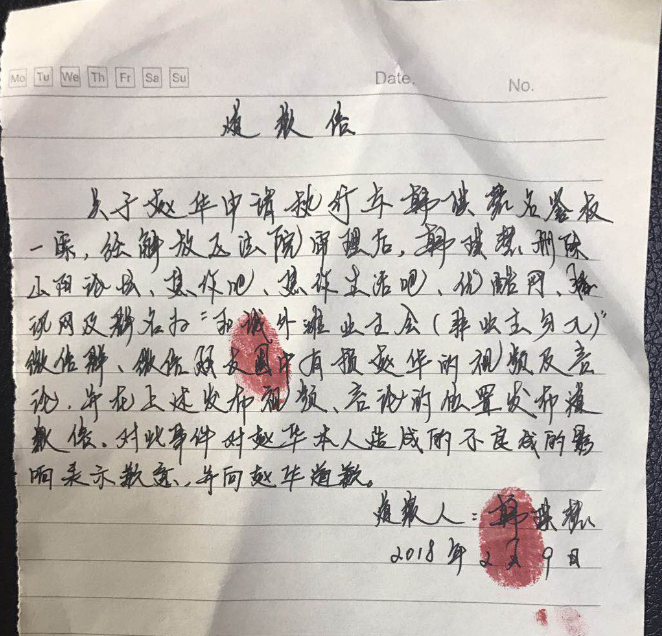 Mo Tu We Th Fr Sa Su Date. No.
道歉信
关于赵华申请执行韩瑛慧名誉权
一案，经解放区法院审理后，韩瑛慧删除
山阳论坛、焦作吧、焦作生活吧、优酷网、腾
讯网及群名为“和诚外滩业主会（非业主勿入）”
微信群、微信朋友圈中有损赵华的视频及言
论，并在上述发布视频、言论的位置发布道
歉信，对此事件对赵华本人造成的不良成的影
响表示歉意，并向赵华道歉。
道歉人：韩瑛慧
2018年2月9日